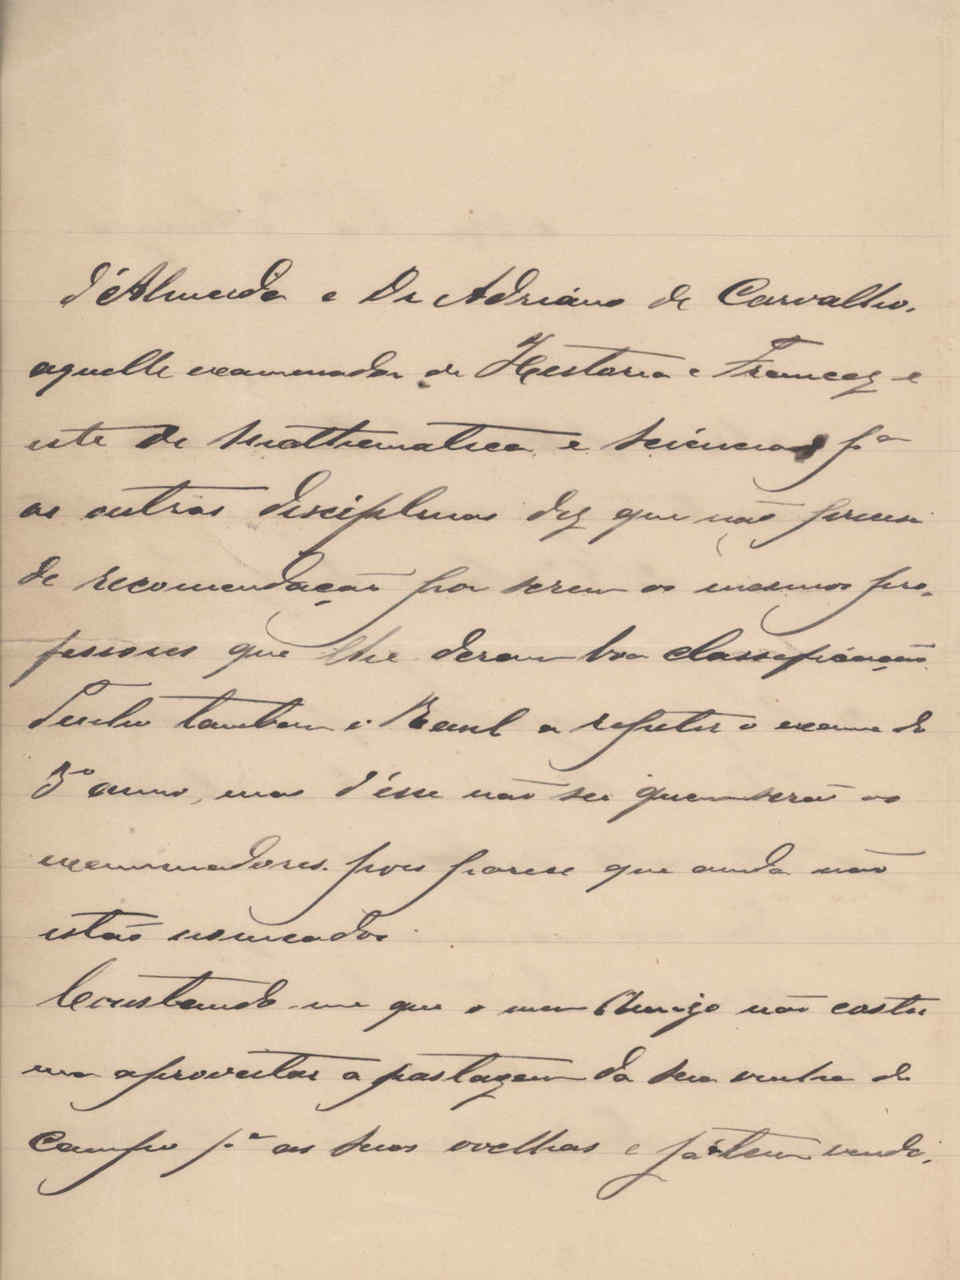 d'Almeida e Dr Adriano de Carvalho,
aquelle examinador de Historia e Francez e
este de Mathematica e Sciencias pª
as outras disciplinas diz que não precisa
de recomendação por serem os mesmos pro-
fessores que lhe deram boa classificação.
Tenho tambem o Raul a repetir o exame do
5º anno, mas d'ésse não sei quem serão os
examinadores. pois parece que ainda não
estão nomeados.
Constando-me que o meu Amigo não costu
ma aproveitar a pastagem da sua vinha do
Campo pª as suas ovelhas e já tem vendi-